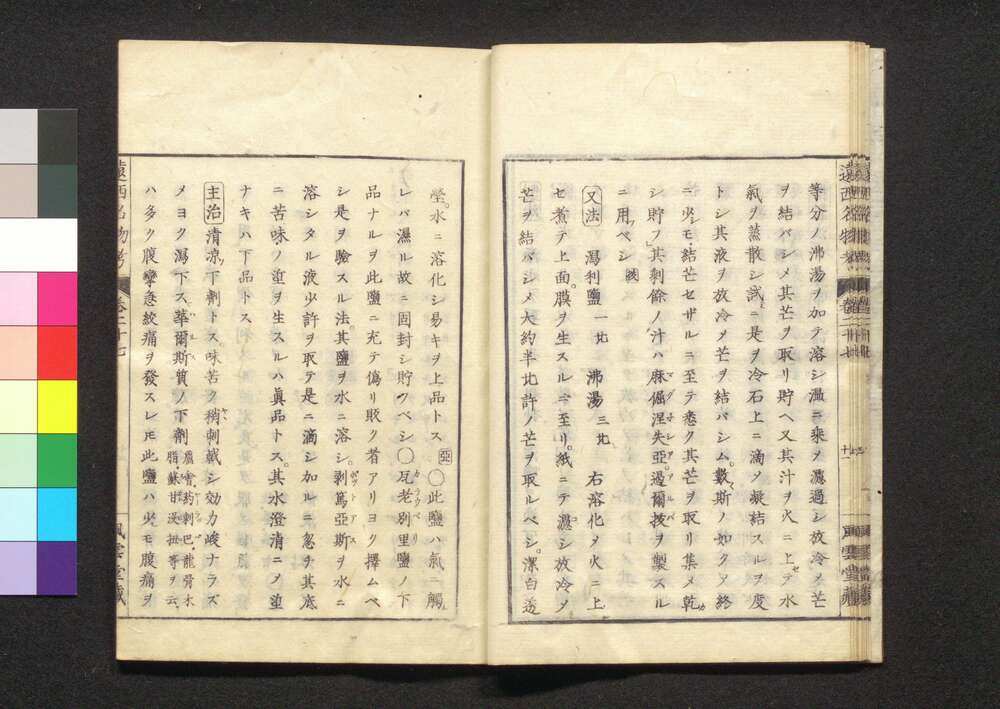 等分ノ沸湯ヲ加テ溶シ溫ニ乘メ濾過シ放冷メ芒
ヲ結バシメ其芒ヲ取リ貯ヘ又其汁ヲ火ニ上セテ水
氣ヲ蒸散シ試ニ是ヲ冷石上ニ滴メ凝結スルヲ度
トシ其液ヲ放冷メ芒ヲ結バシム。數斯ノ如クメ終
ニ少シモ結芒セザルニ至テ悉ク其芒ヲ取リ集メ乾
シ貯フ」其剩餘ノ汁ハ麻倔涅失亞。過爾拔ヲ製スル
ニ用ベシ
又法 瀉利鹽 一 沸湯 三 右溶化メ火ニ上
セ煮テ上面。膜ヲ生スルニ至リ。紙ニテ濾シ放冷メ
芒ヲ結バシメ大約半 許ノ芒ヲ取ルベシ。潔白透
瑩。水ニ溶化シ易キヲ上品トス 亞 ○此鹽ハ氣ニ觸
レバ濕ル故ニ固封シ貯ツベシ○瓦老別里鹽ノ下
品ナルヲ此鹽ニ充テ僞リ販ク者アリヨク擇ムベ
シ是ヲ驗スル法。其鹽ヲ水ニ溶シ。剥篤亞斯ヲ水ニ
溶シタル液少許ヲ取テ是ニ滴シ加ルニ忽チ其底
ニ苦味ノ渣ヲ生スルハ眞品トス。其水澄淸ニメ渣
ナキハ下品トス
主治 淸凉。下劑トス。味苦ク稍刺戟シ効力峻ナラズ
メヨク瀉下ス華爾斯質ノ下劑 刺巴。龍骨木脂。蘇甘没扭等ヲ云
ハ多ク腹攣急絞痛ヲ發スレ𪜈此鹽ハ少モ腹痛ヲ
遠西名物考 卷二十七
風雲堂藏